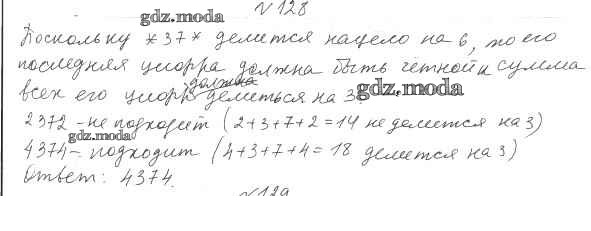 №128
gdz.moda
Поскольку *37* делится нацело на 6, то его
последняя цифра должна быть чётной и сумма
должна
всех его цифр делиться на 3.
gdz.moda
2372 - не подходит (2+3+7+2=14 не делится на 3)
gdz.moda
4374 - подходит (4+3+7+4=18 делится на 3)
Ответ: 4374.
№129